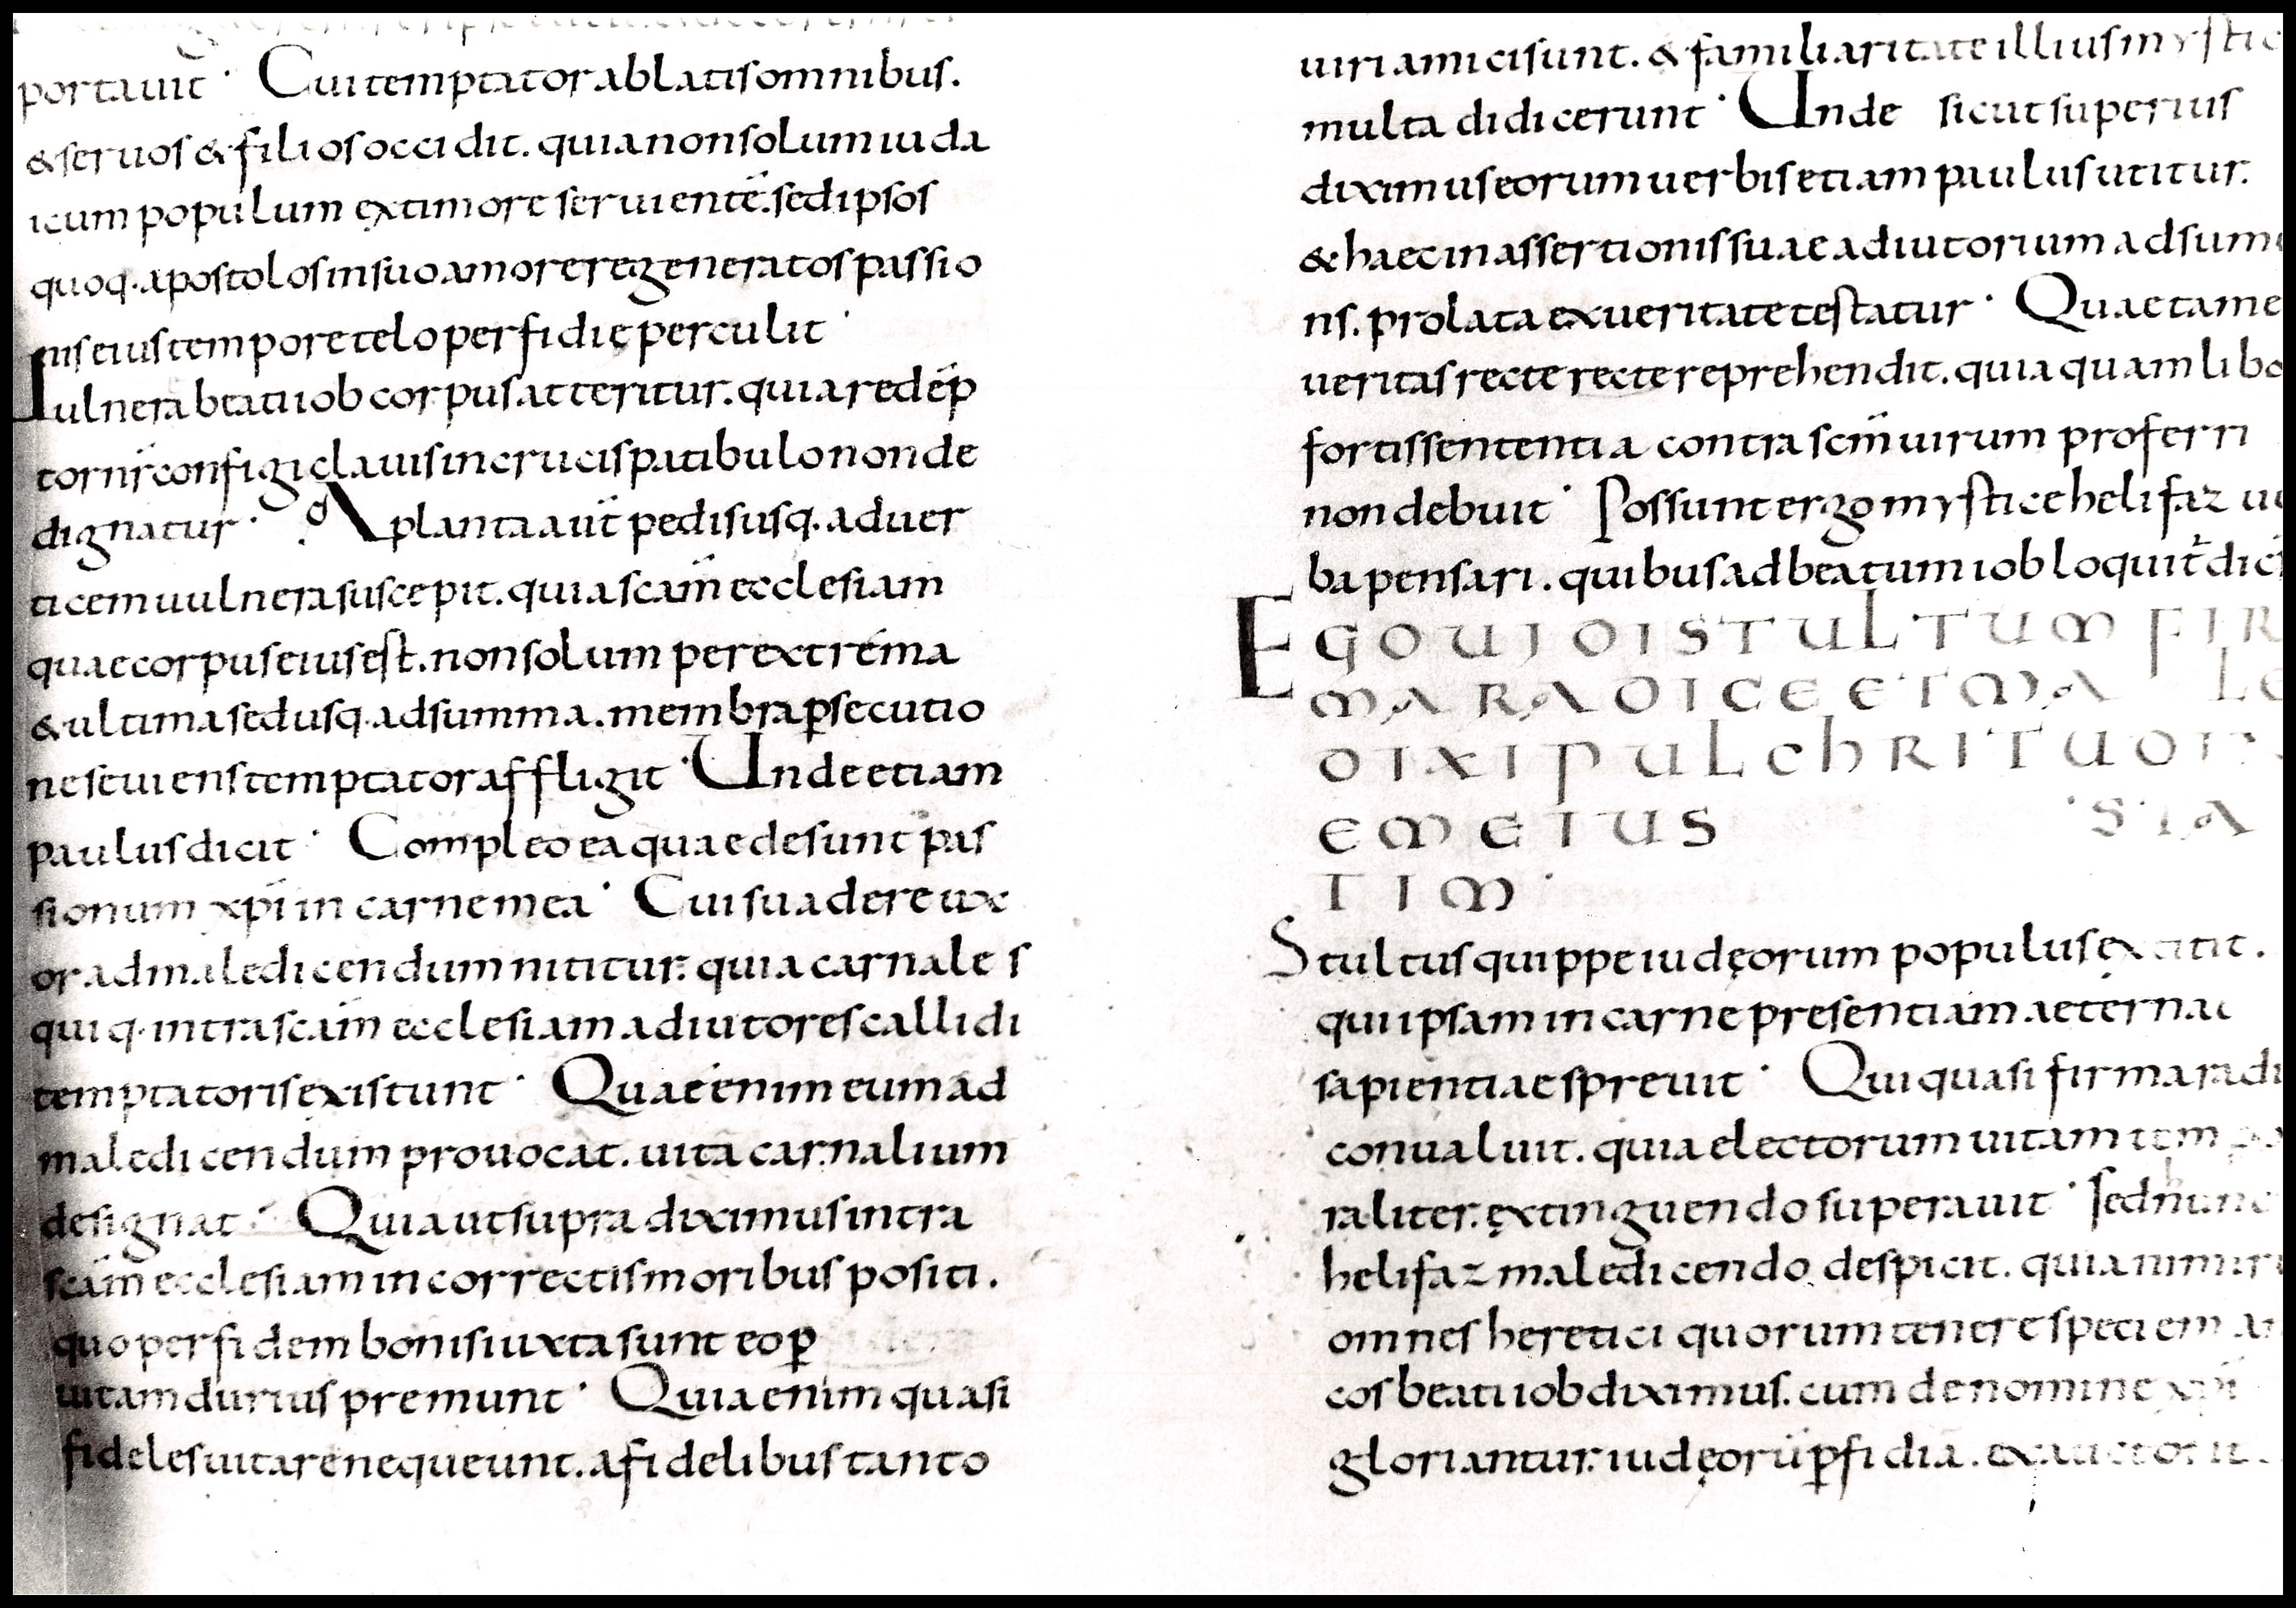 portauit · Cui temptator ablatis omnibus.
& seruos & filios occidit. quia non solum iuda
icum populum ex timore seruientē. sed ipsos
quoq. apostolos in suo amore regeneratos passio
nis eius tempore telo perfidię perculit ·
Uulnera beati iob corpus atteritur. quia redēp
tor nr̄ configi clauis in crucis patibulo non de
dignatur · A planta aūt pedis usq. ad uer
ticem uulnera suscepit. quia scām ecclesiam
quae corpus eius est. non solum per extrema
& ultima sed usq. ad summa. membra ꝑsecutio
ne seuiens temptator affligit · Unde etiam
paulus dicit · Compleo ea quae desunt pas
sionum xp̄i in carne mea · Cui suadere ux
or ad maledicendum nititur. quia carnales
quiq. intra scām ecclesiam adiutores callidi
temptatoris existunt · Quae enim eum ad
maledicendum prouocat. uita carnalium
designat · Quia ut supra diximus intra
scām ecclesiam incorrectis moribus positi.
quo per fidem bonis iuxta sunt eo ꝑ
uitam durius premunt · Quia enim quasi
fideles uitare nequeunt. a fidelibus tanto
uiri amici sunt. & familiaritate illius mystic
multa didicerunt · Unde sicut superius
diximus eorum uerbis etiam paulus utitur.
& haec in assertionis suae adiutorium adsum
ns. prolata ex ueritate testatur · Quae tame
ueritas recte recte reprehendit. quia quamlib
fortis sententia contra scm̄ uirum proferri
non debuit · Possunt ergo mystice helifaz u
ba pensari. quibus ad beatum iob loquit̄ dic
EGO UIDI STULTUM FIR
MA RADICE ET MA LE
DIXI PULCHRITUDI
EM EIUS STA
TIM ·
Stultus quippe iudęorum populus extitit.
qui ipsam in carne presentiam aeternae
sapientiae spreuit · Qui quasi firma radi
conualuit. quia electorum uitam tem po
raliter. extinguendo superauit · sed hunc
helifaz maledicendo despicit. quia nimir
omnes heretici quorum tenere speciem a
cos beati iob diximus. cum de nomine xp̄i
gloriantur. iudęorū ꝑfidiā. ex auctorit